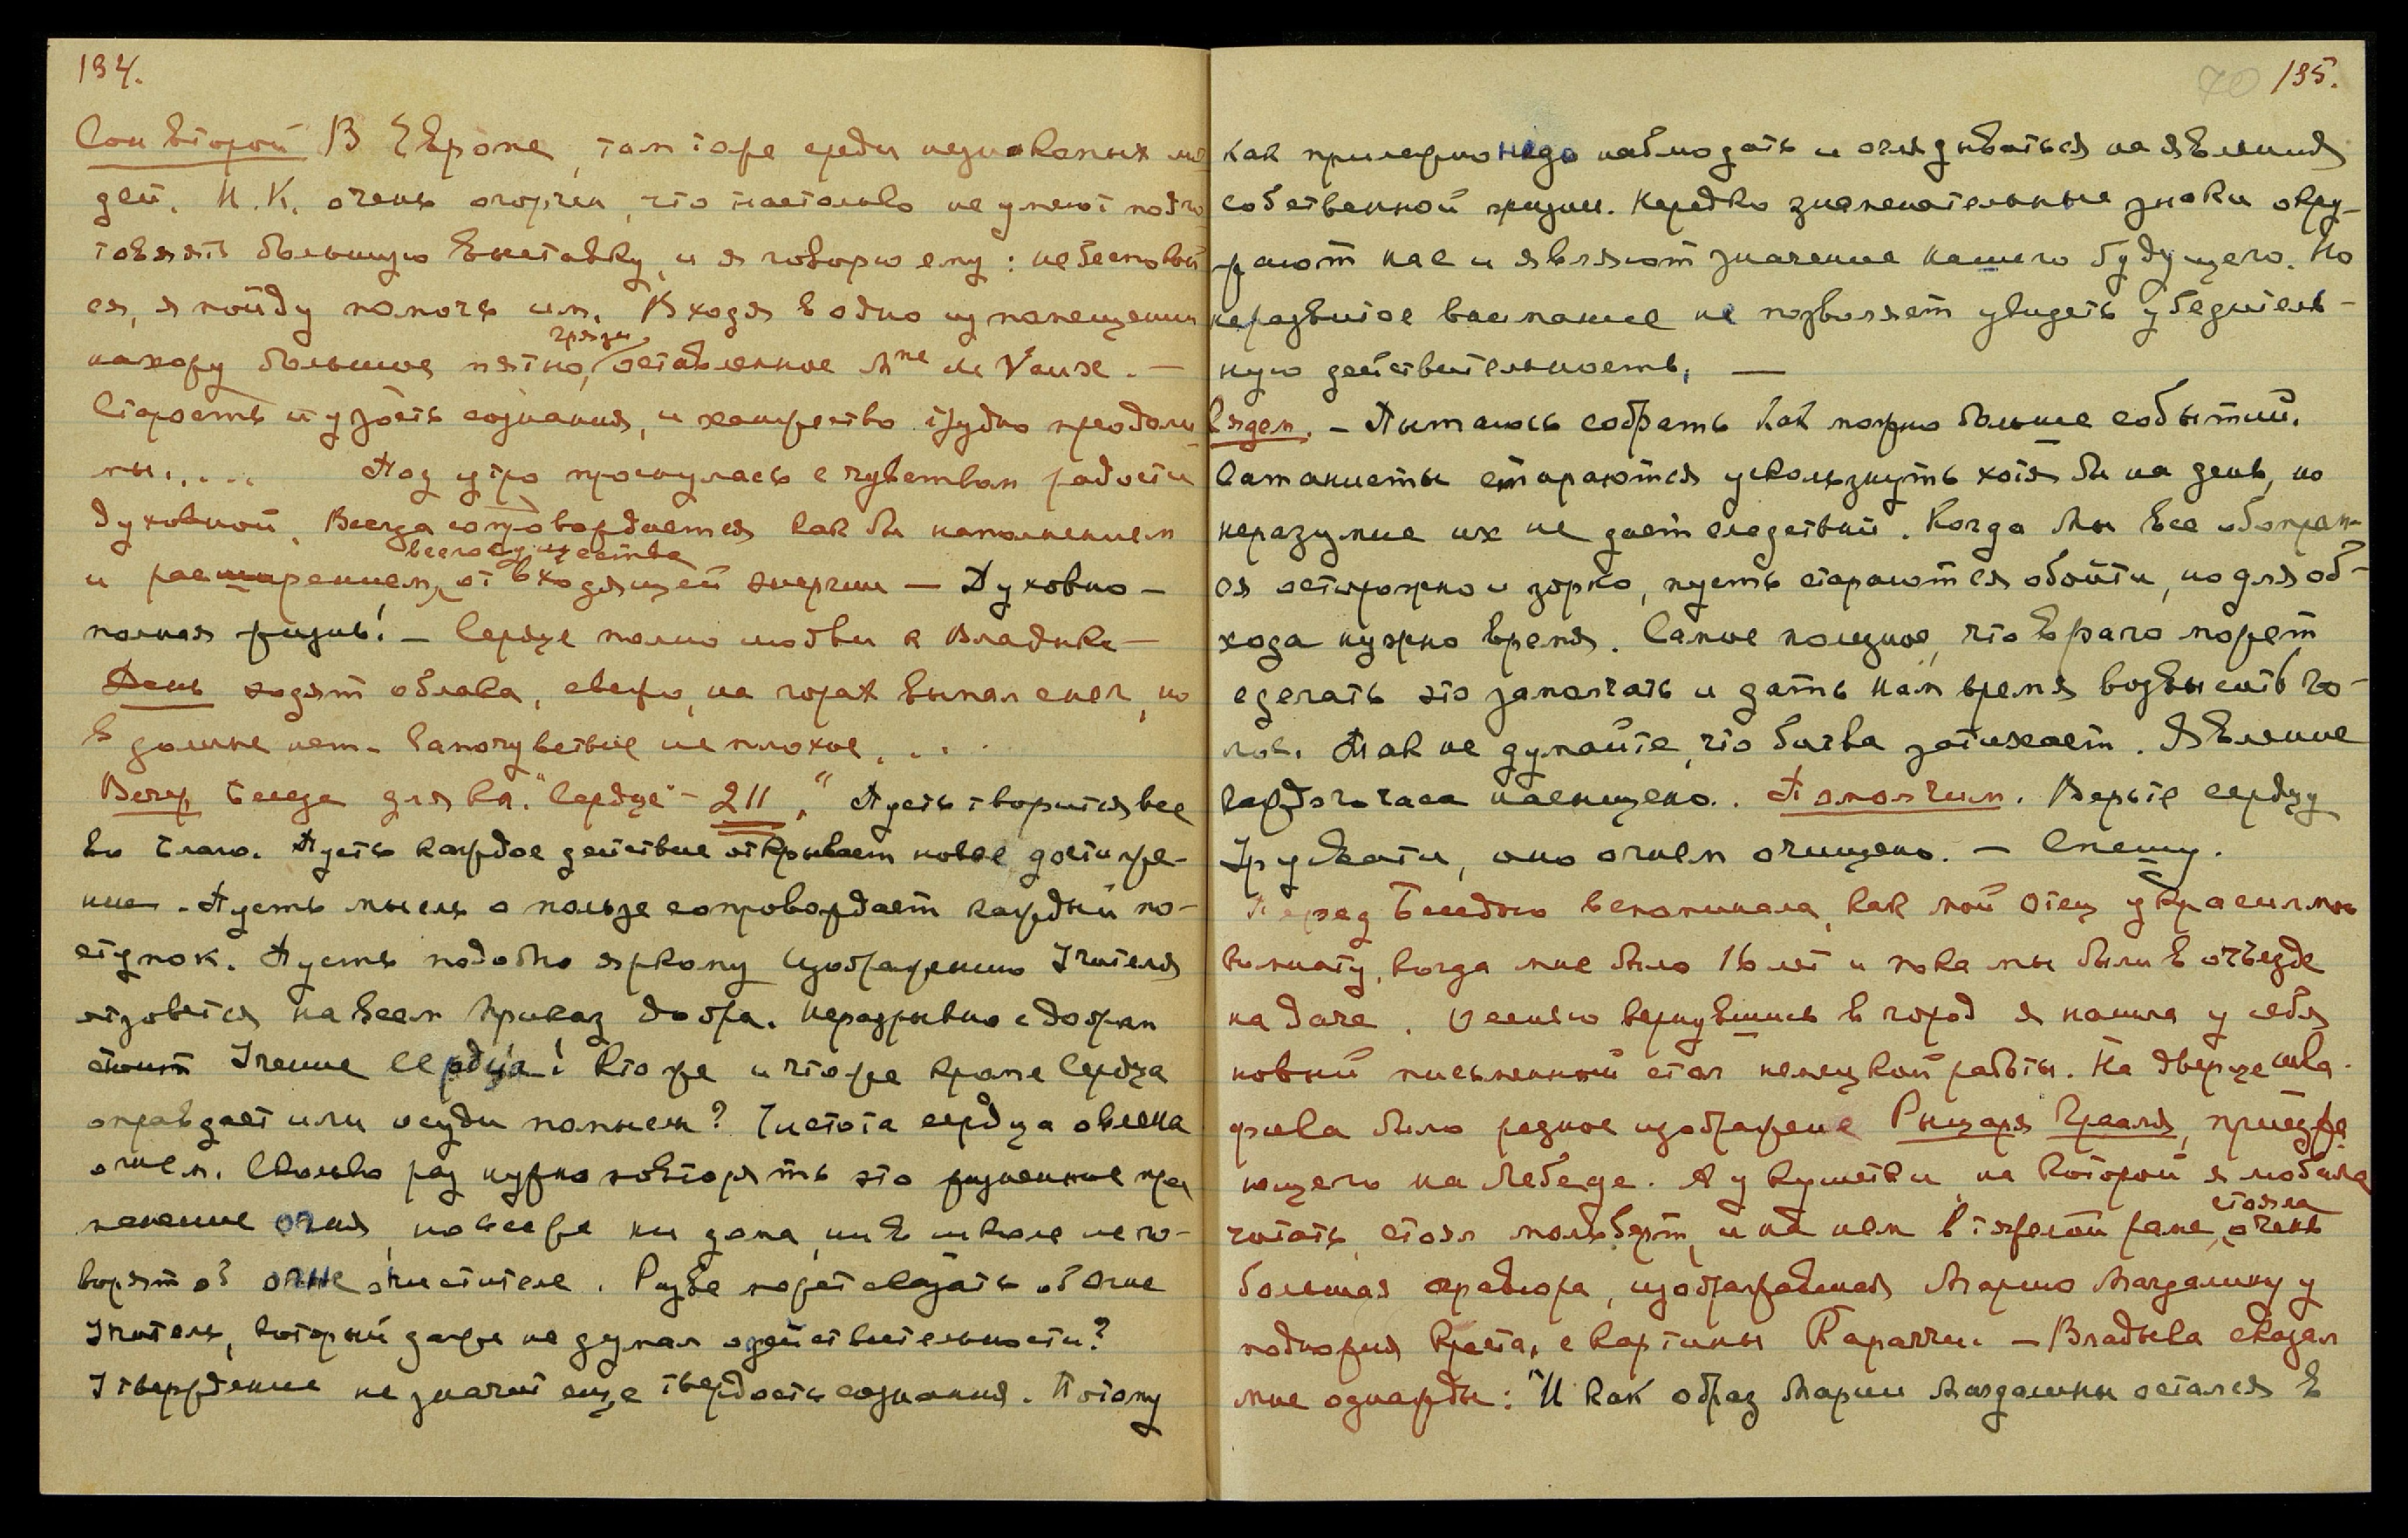 134.
Сон второй В Европе, там тоже среди незнакомых лю
дей. Н.К. очень огорчен, что настолько не умеют подго
товлять большую выставку, и я говорю ему: не беспокой
ся, я пойду помочь им. Входя в одно из помещений
нахожу большое пятно грязи, оставленное Mme de Vaux. —
Старость и узость сознания, и ханжество трудно преодоли
мы..... Под утро проснулась с чувством радости
духовной. Всегда сопровождается как бы наполнением
и расширением всего существа от входящей энергии — Духовно –
полная жизнь! — Сердце полно любви к Владыке —
День ходят облака, свежо, на горах выпал снег, но
в долине нет. Самочувствие не плохое. . .
Вечер Беседа для кн. "Сердце" – 211. "Пусть творится все
во благо. Пусть каждое действие открывает новое достиже-
ние. Пусть мысль о пользе сопровождает каждый по-
ступок. Пусть подобно яркому изображению Учителя
отзовется на всем приказ добра. Неразрывно с добром
стоит Учение Сердца! Кто же и что же кроме Сердца
оправдает или осудит помысел? Чистота сердца овеяна
огнем. Сколько раз нужно повторять это жизненное при
менение огня, но все же ни дома, ни в школе не го-
ворят об огне очистителе. Разве может сказать об огне
Учитель, который даже не думал о действительности?
Утверждение не значит еще твердость сознания. Потому
70 135.
как прилежно надо наблюдать и оглядываться на явления
собственной жизни. Нередко знаменательные знаки окру-
жают нас и являют значение нашего будущего. Но
неразвитое внимание не позволяет увидеть убедитель-
ную действительность. —
Сядем. – Пытаюсь собрать как можно больше событий.
Сатанисты стараются ускользнуть хотя бы на день, но
неразумие их не дает следствий. Когда Мы все обопрем-
ся осторожно и зорко, пусть стараются обойти, но для об-
хода нужно время. Самое полезное, что враг может
сделать это замолчать и дать нам время возвысить го-
лос. Так не думайте, что битва затихает. Явление
каждого часа насыщено. Помолчим. Верьте сердцу
Урусвати, оно огнем очищено. — Спешу.
Перед Беседою вспоминала, как мой отец украсил мою
комнату, когда мне было 16 лет и пока мы были в отъезде
на даче. Осенью вернувшись в город я нашла у себя
новый письменный стол немецкой работы. На дверце шка-
фика было резное изображение Рыцаря Грааля, приезжа
ющего на Лебеде. А у кушетки на которой я любила
читать, стоял мольберт, и на нем в тяжелой раме, стояла очень
большая гравюра, изображавшая Марию Магдалину у
подножия Креста, с картины Караччи. — Владыка сказал
мне однажды: "И как образ Марии Магдалины остался в